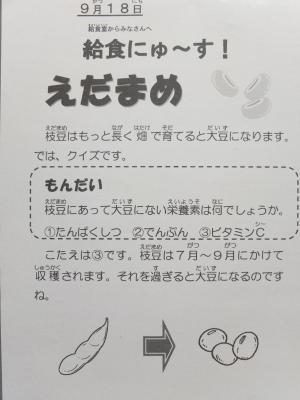 9月18日
給食室からみなさんへ
給食にゅ～す！
えだまめ
枝豆はもっと長く畑で育てると大豆になります。
では、クイズです。
もんだい
枝豆にあって大豆にない栄養素は何でしょうか。
①たんぱくしつ　②でんぷん　③ビタミンC
こたえは③です。枝豆は７月～９月にかけて
収穫されます。それを過ぎると大豆になるのです
ね。